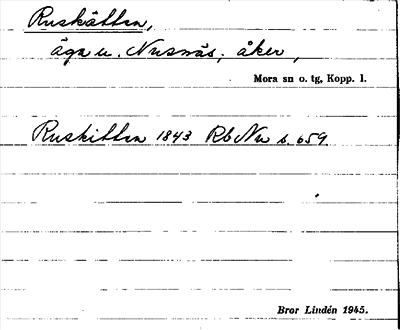 Ruskätten,
äga u. Nusnäs, åker,
Mora sn o. tg, Kopp. l.
Ruskitten 1843 Rb Nu s. 659.
Bror Lindén 1945.